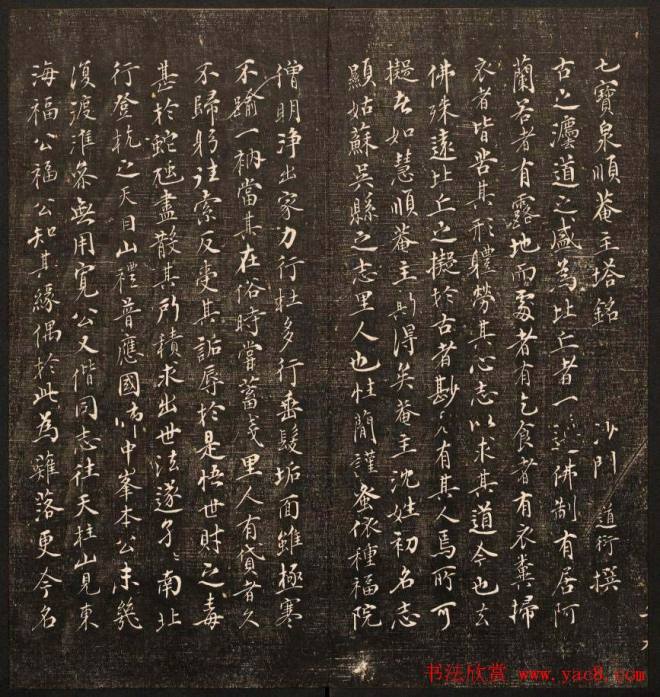 七寶泉順菴主塔銘 沙門 道衍撰
古之灋道之盛為比丘者一遵佛制有居阿
蘭若者有露地而處者有乞食者有衣糞掃
衣者皆苦其形體勞其心志以求其道今也去
佛殊遠比丘之擬於古者尠矣有其人焉所可
擬者如慧順菴主斯得矣菴主沈姓初名志
顯姑蘇吳縣之志里人也性簡謹蚤依種福院
僧明淨出家力行杜多行垂髮垢面雖極寒
不踰一衲當其在俗時嘗蓄里人有貸者久
不歸躬往索反受其詬辱於是悟世財之毒
甚於蛇虺盡散其所積求出世法遂南北
行登杭之天目山禮普應國師中峯本公未幾
復渡淮參無用寬公又偕同志往天柱山見東
海福公福公知其緣偶於此為薙落更今名
书法欣赏 www.yac8.com